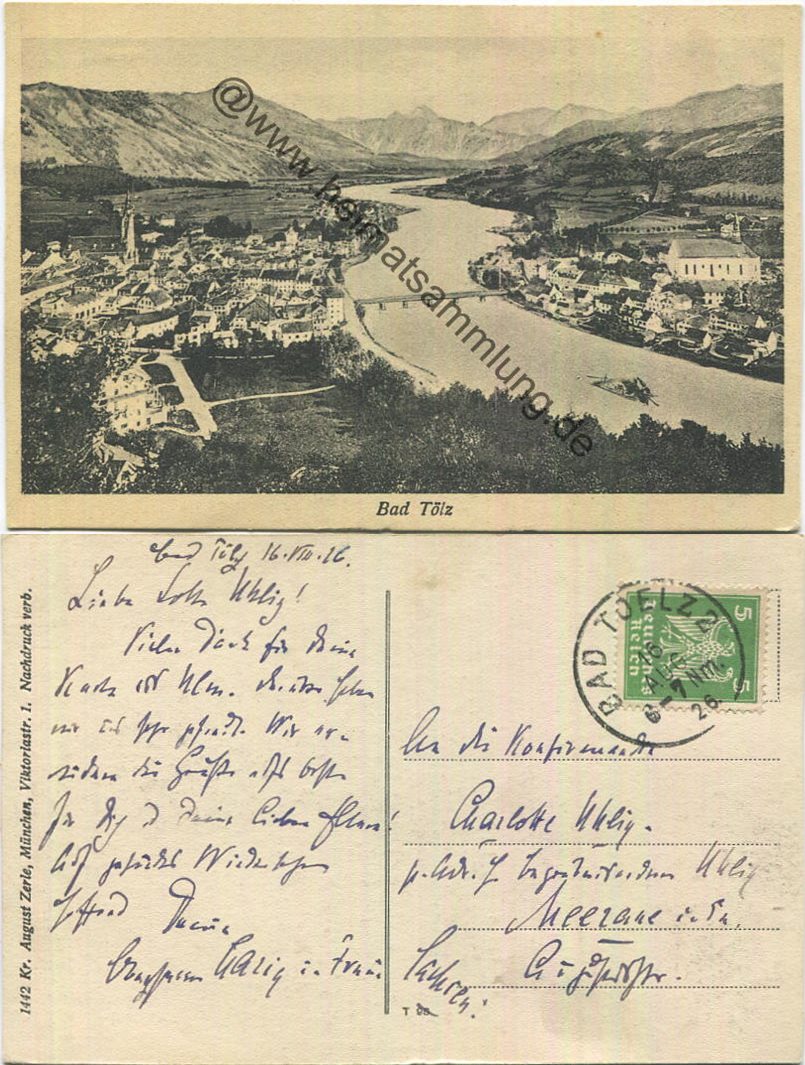 @www.heimatsammlung.de
Bad Tölz
1442 Kr. August Zerle, München, Viktoriastr. 1. Nachdruck verb.
Bad Tölz 16.VIII.26.
Liebe Lotte Uhlig!
Vielen Dank für Deine
Karte aus Ulm.
wir uns sehr gefreut. Wir er-
widern die Grüße aufs beste
für Dich u Deine lieben Eltern!
Auf gesundes Wiedersehen
hoffend Deine
Uhlig u. Frau
BAD TOELZ 2
16.
AUG
6-7 Nm.
26.
5 5
Deutsches
Reich
An die Konfirmande
Charlotte Uhlig.
p. Adr. H. Uhlig
Meerane i. Sa.
Sachsen!
T